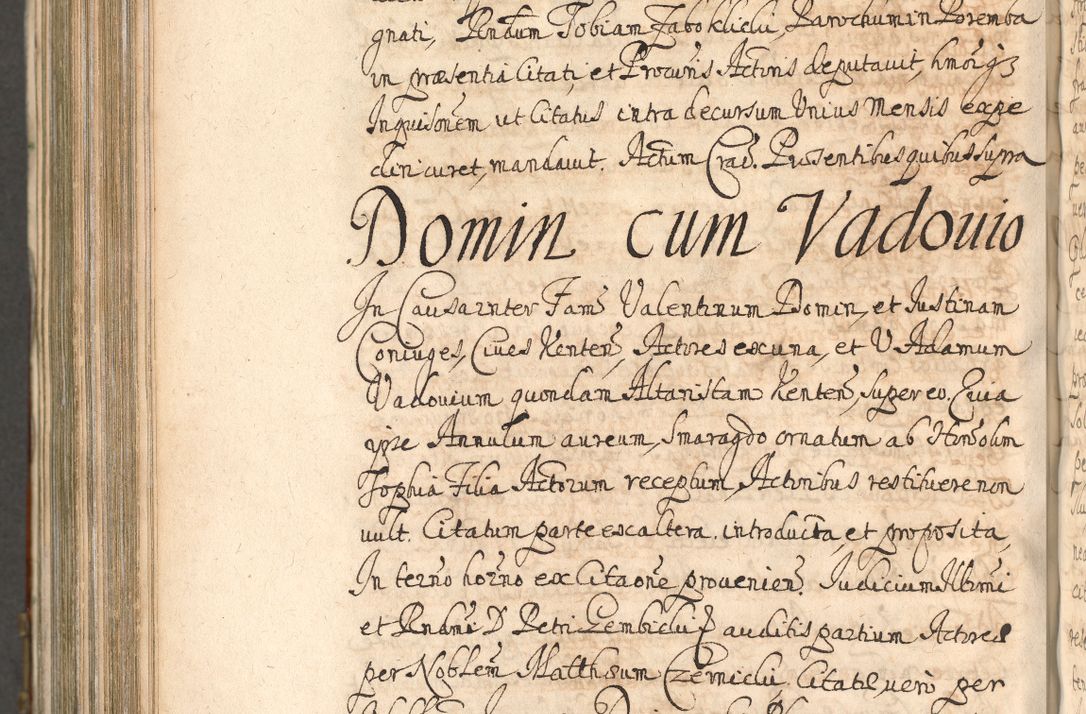 gnati, Rndum Tobiam Zabokliclii, Parochum in Poremba
in præsentia Citati, et Procuris Actoris deputavit, hmoi q3
Inquisonem ut Citatus intra decursum Unius Mensis expe
diri curet, mandavit. Actum Crac. Præsentibus quibus supra
Domin cum Vadouio
In Causa inter Fam̃ Valentinum Domin, et Iustinam
Coniuges, Ciues Kenteñ, Actores ex una, et V Adamum
Vadouium quondam Altaristam Kenteñ, super eo. Quia
ipse Annulum aureum, Smaragdo ornatum ab Honẽ olim
Sophia Filia Actorum receptum, Actoribus restituere non
vult. Citatum parte ex altera introducta, et proposita,
In termo horno ex Citaone provenieñ. Iudicium Illrmi
et Rndmi D Petri Gembiclii auditis partium Actores
per Noblem Matthæum Czerniclii, Citati vero per